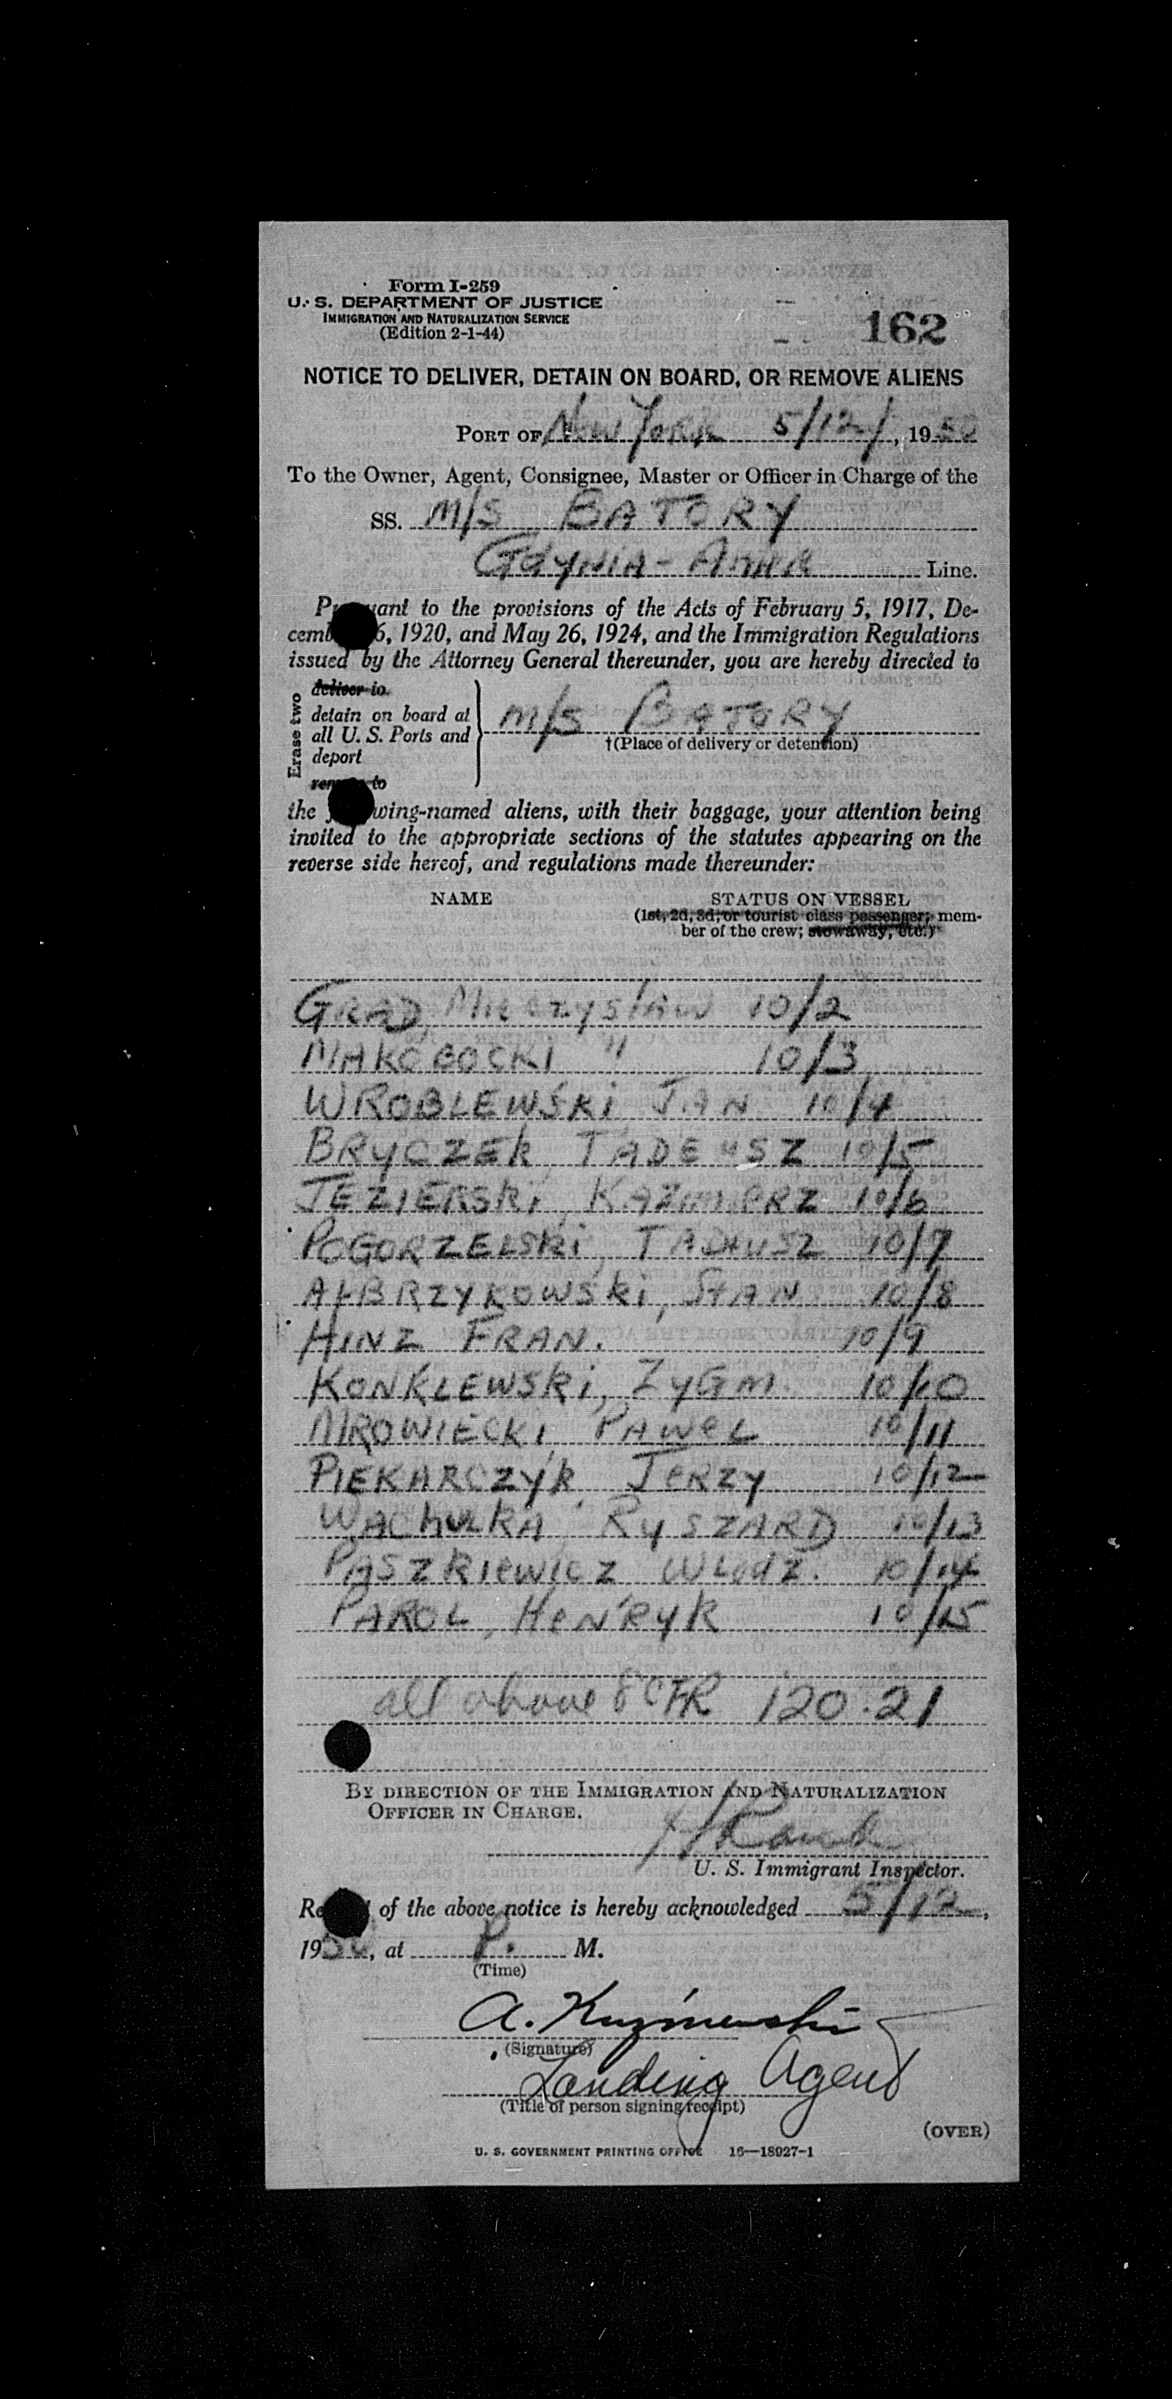 Form I-259
U. S. DEPARTMENT OF JUSTICE
IMMIGRATION AND NATURALIZATION SERVICE
(Edition 2-1-44)
162
NOTICE TO DELIVER, DETAIN ON BOARD, OR REMOVE ALIENS
PORT OF New York 5/12/, 1950
To the Owner, Agent, Consignee, Master or Officer in Charge of the
SS. M/S BATORY
GdYNIA - AMER Line.
Pursuant to the provisions of the Acts of February 5, 1917, De-
cember 26, 1920, and May 26, 1924, and the Immigration Regulations
issued by the Attorney General thereunder, you are hereby directed to
Erase two
deliver to
detain on board at
all U. S. Ports and
deport
remove to
M/S BATORY
†(Place of delivery or detention)
the following-named aliens, with their baggage, your attention being
invited to the appropriate sections of the statutes appearing on the
reverse side hereof, and regulations made thereunder:
NAME STATUS ON VESSEL
(1st, 2d, 3d, or tourist class passenger; mem-
ber of the crew; stowaway, etc.)
GRAD MIECZYSłAW 10/2
MAKOBOCKI " 10/3
WROBLEWSKi JAN 10/4
BRYCZEK, TADEUSZ 10/5
JEZIERSKi, KAZIMIERZ 10/6
POGORZELSKi, TADEUSZ 10/7
STAN 10/8
HINZ FRAN. 10/9
KONKLEWSKi, ZYGM. 10/10
MROWIECKI, PAWEL 10/11
PIEKARCZYK, JERZY 10/12
WACHULKA, RYSZARD 10/13
PASZKIEWICZ WLODZ. 10/14
PAROL, HENRYK 10/15
all above 8 CFR 120.21
BY DIRECTION OF THE IMMIGRATION AND NATURALIZATION
OFFICER IN CHARGE.
U. S. Immigrant Inspector.
Receipt of the above notice is hereby acknowledged 5/12,
1950, at P. M.
(Time)
A. Kuzniewski
(Signature)
Landing Agent
(Title of person signing receipt)
(OVER)
U. S. GOVERNMENT PRINTING OFFICE 16—18927-1